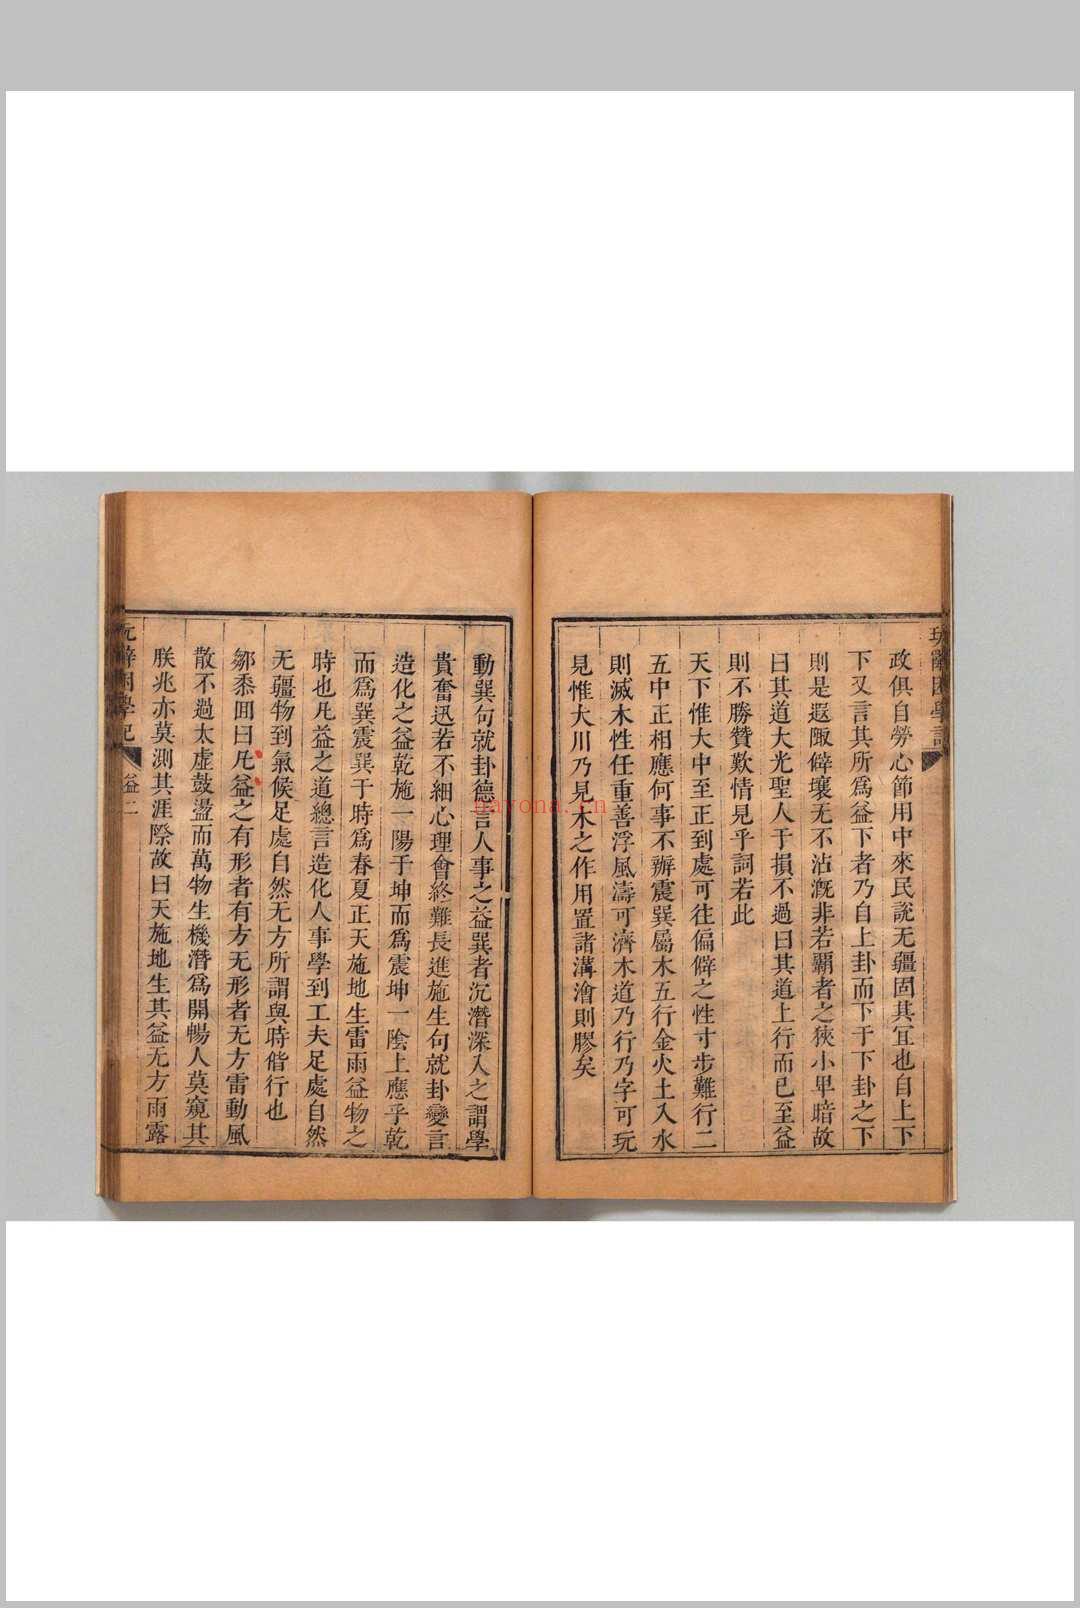 政俱自勞心節用中來民說无疆固其宜也自上下
下又言其所爲益下者乃自上卦而下于下卦之下
則是遐陬僻壤无不沾漑非若覇者之狹小卑暗故
曰其道大光聖人于損不過曰其道上行而已至益
則不勝贊歎情見乎詞若此
天下惟大中至正到處可往偏僻之性寸步難行二
五中正相應何事不辦震巽屬木五行金火土入水
則滅木性任重善浮風濤可濟木道乃行乃字可玩
見惟大川乃見木之作用置諸溝澮則膠矣
動巽句就卦德言人事之益巽者沉潛深入之謂學
貴奮迅若不細心理會終難長進施生句就卦變言
造化之益乾施一陽于坤而爲震坤一陰上應乎乾
而爲巽震巽于時爲春夏正天施地生雷雨益物之
時也凡益之道總言造化人事學到工夫足處自然
无疆物到氣候足處自然无方所謂與時偕行也
鄒黍囬曰凡益之有形者有方无形者无方雷動風
散不過太虛鼓盪而萬物生機潛爲開暢人莫窺其
朕兆亦莫測其涯際故曰天施地生其益无方雨露
玩辭困學記
益二
nayona.cn